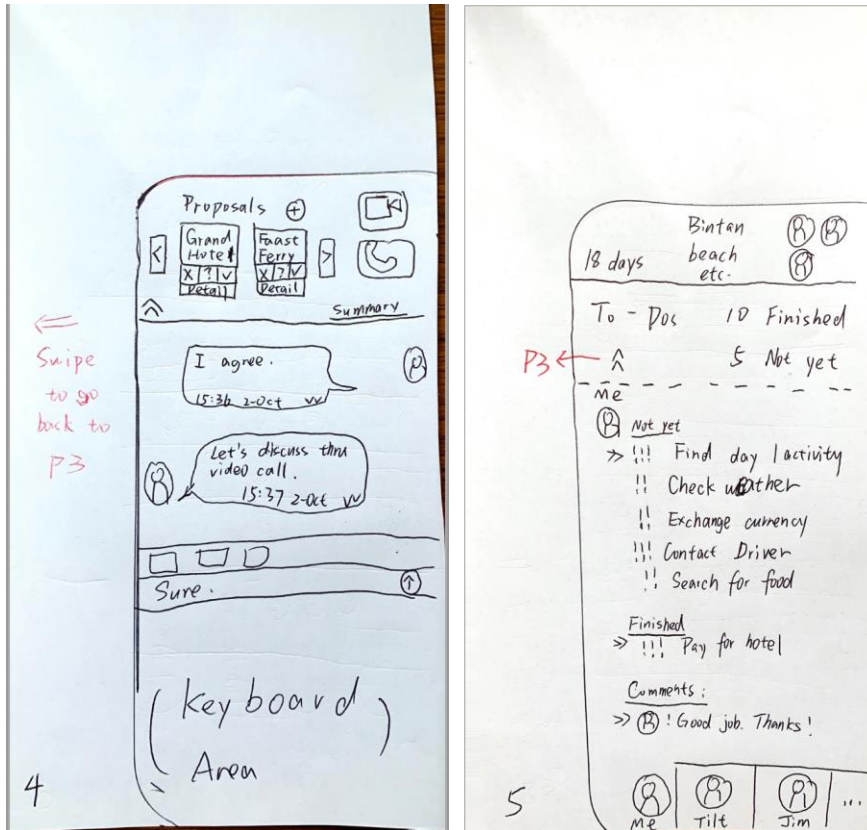 Proposals +
Grand Hotel
Faast Ferry
< >
X ? V
X ? V
Detail
Detail
Summary
Swipe
to go
back to
P3
I agree.
15:36 2-Oct
Let's discuss thru
video call.
15:37 2-Oct
Sure.
(Keyboard
Area)
4
Bintan
beach
etc.
18 days
To - Dos 10 Finished
5 Not yet
P3
Me
Not yet
!!! Find day 1 activity
!! Check weather
!! Exchange currency
!!! Contact Driver
!! Search for food
Finished
!!! Pay for hotel
Comments:
! Good job. Thanks!
5
Me Tilt Jim ...